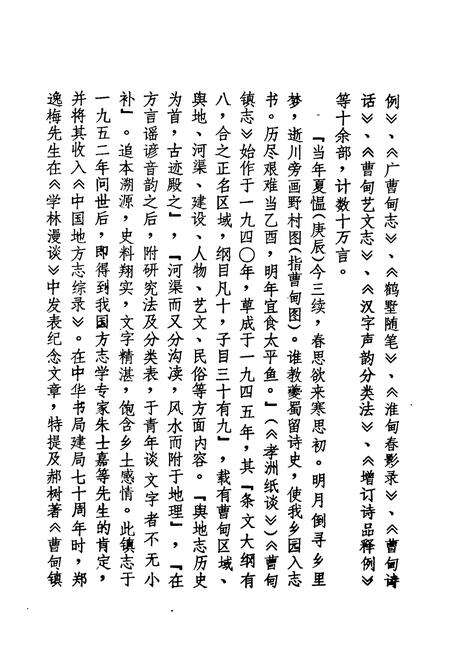 例》、《广曹甸志》、《鹤墅随笔》、《淮甸春影录》、《曹甸诗
话》、《曹甸艺文志》、《汉字声韵分类法》、《增订诗品释例》
等十余部，计数十万言。
『当年夏愠(庚辰)今三续，春思欲来寒思初。明月倒寻乡里
梦，逝川旁画野村图(指曹甸图)。谁教夔蜀留诗史，使我乡园入志
书。历尽艰难当乙酉，明年宜食太平鱼。』(《孝洲纸谈》)《曹甸
镇志》始作于一九四〇年，草成于一九四五年，其『条文大纲有
八，合之正名区域，纲目凡十，子目三十有九』，载有曹甸区域、
舆地、河渠、建设、人物、艺文、民俗等方面内容。『舆地志历史
为首，古迹殿之』，『河渠而又分沟渎，风水而附于地理』，『在
方言谣谚音韵之后，附研究法及分类表，于青年谈文字者不无小
补』。追本溯源，史料翔实，文字精湛，饱含乡土感情。此镇志于
一九五二年问世后，即得到我国方志学专家朱士嘉等先生的肯定，
并将其收入《中国地方志综录》。在中华书局建局七十周年时，郑
逸梅先生在《学林漫谈》中发表纪念文章，特提及郝树著《曹甸镇